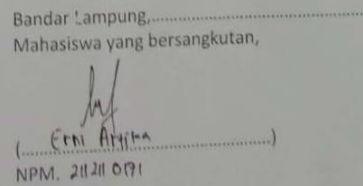 Bandar Lampung,....................................
Mahasiswa yang bersangkutan,
(.... Erni ....................)
NPM. 211211 0171